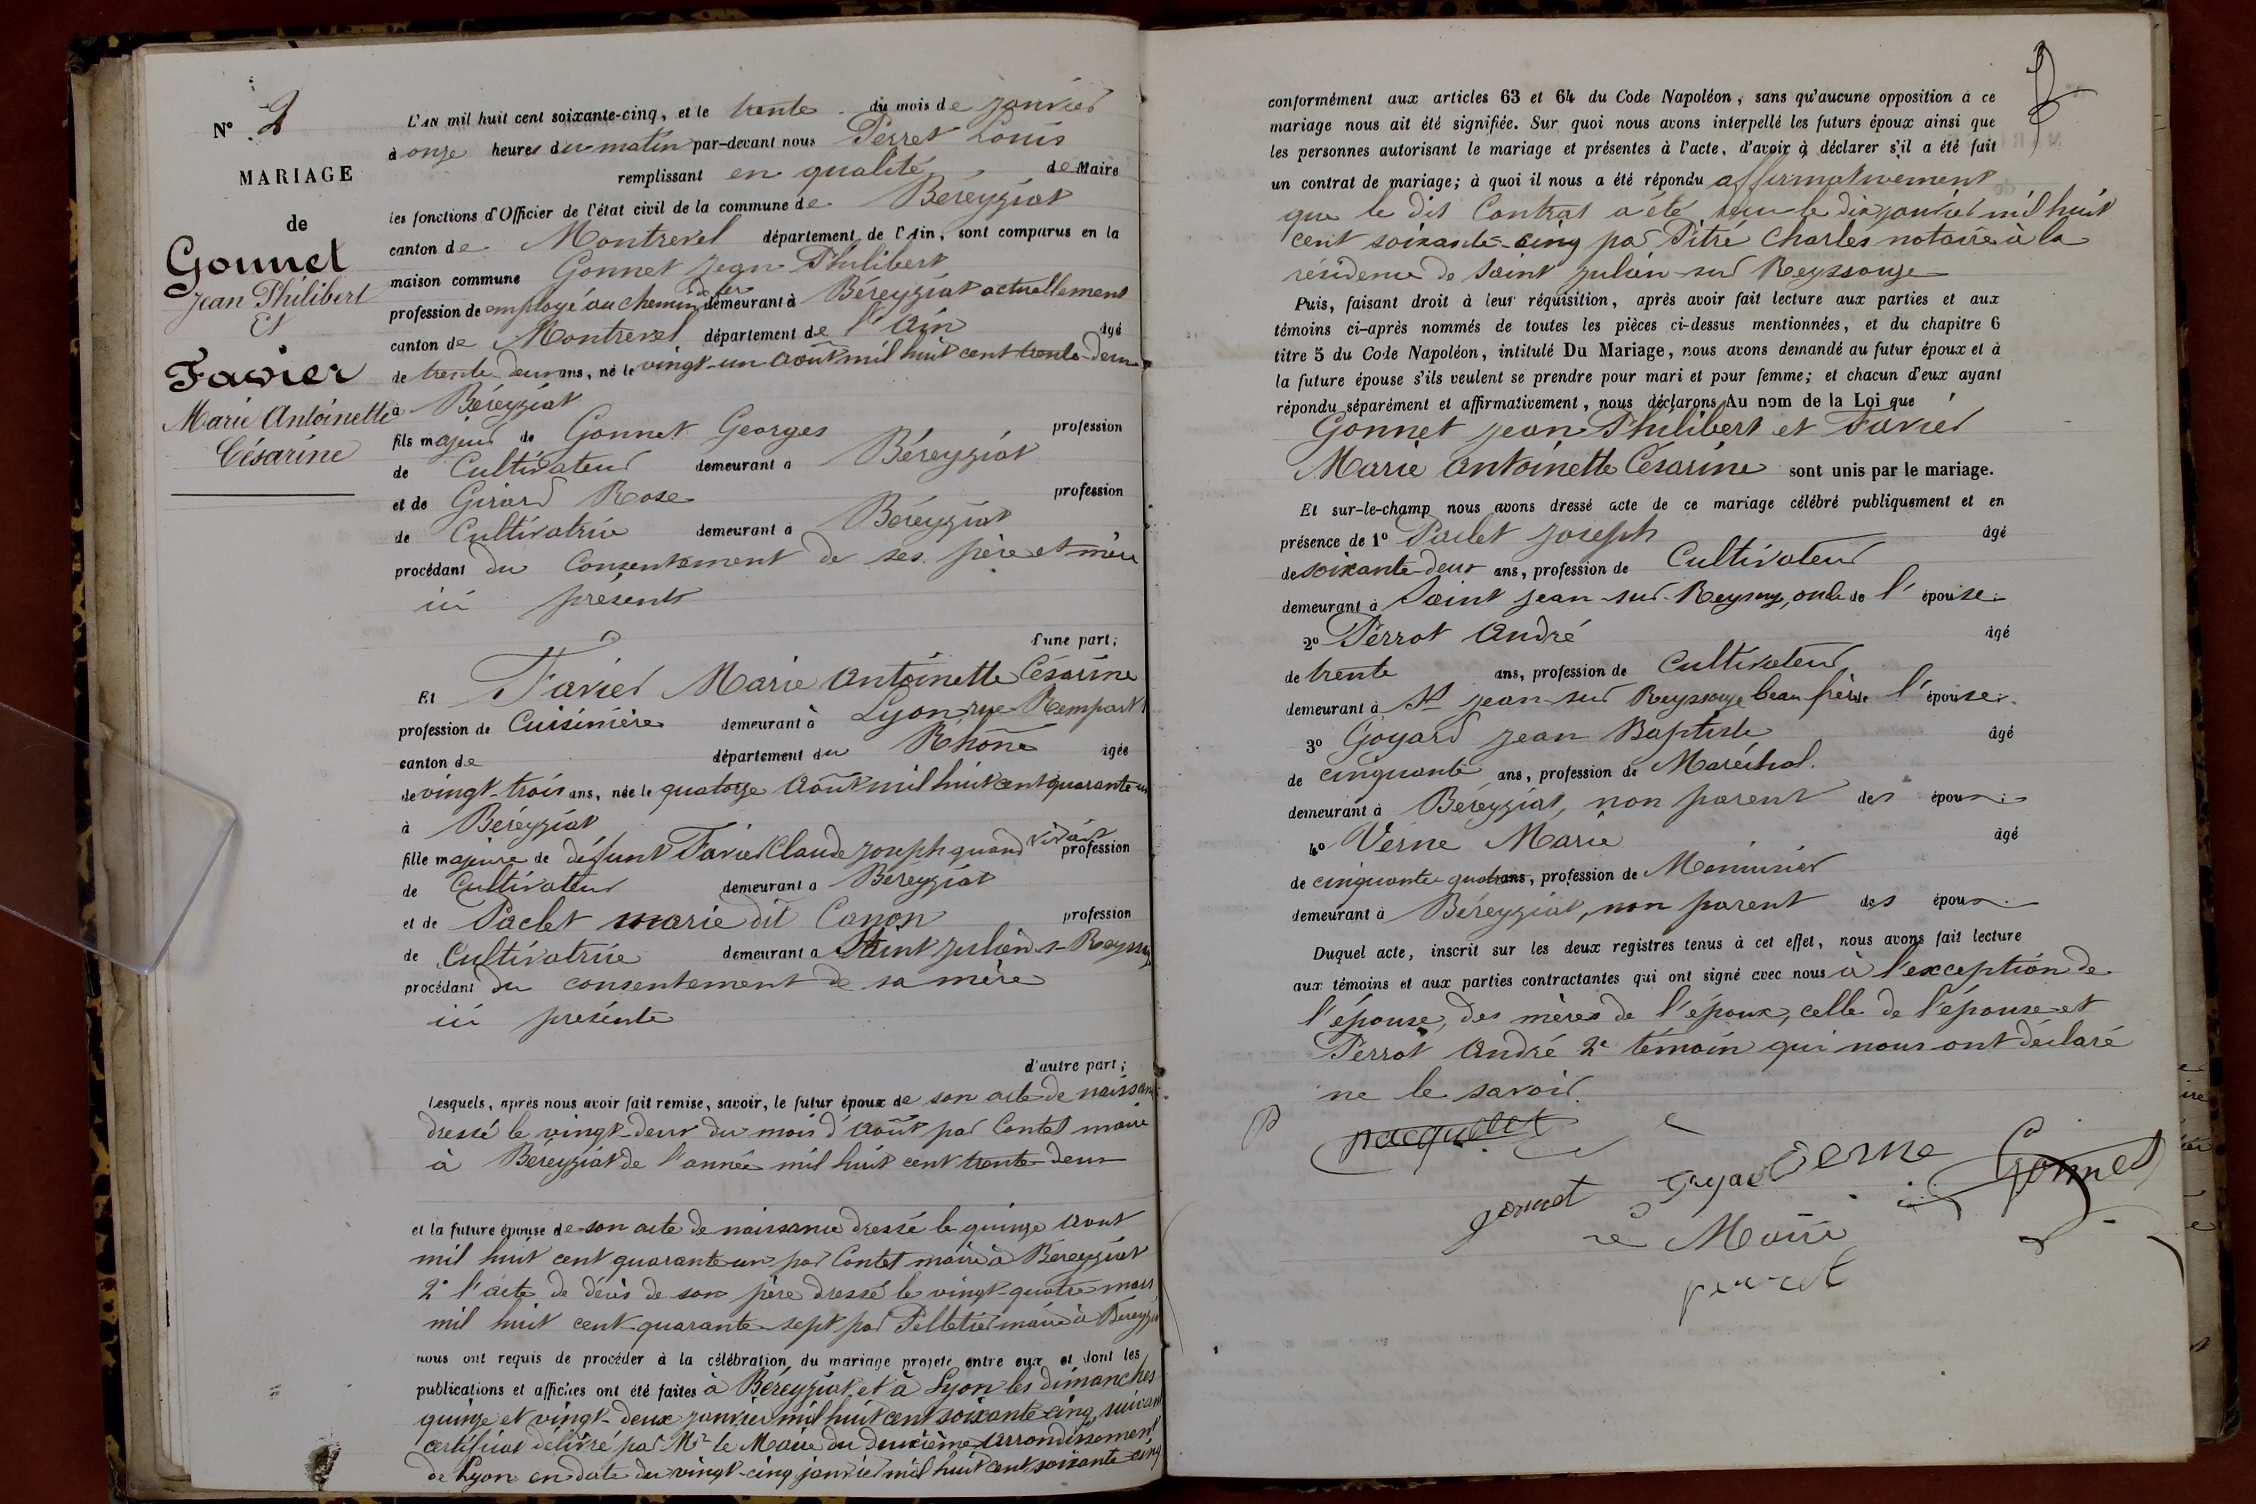 N° 2
MARIAGE
de
Gonnet
Jean Philibert
Et
Favier
Marie Antoinette
Césarine
L'AN mil huit cent soixante-cinq, et le trente du mois de janvier
à onze heures du matin par-devant nous Perret Louis
remplissant en qualité de Maire
les fonctions d'Officier de l'état civil de la commune de Béréyziat
canton de Montrevel département de l'Ain, sont comparus en la
maison commune Gonnet Jean Philibert
profession de employé au chemin de fer demeurant à Béréyziat actuellement
canton de Montrevel département de l'Ain âgé
de trente deux ans, né le vingt-un août mil huit cent trente-deux
à Béréyziat
fils majeur de Gonnet Georges profession
de Cultivateur demeurant à Béréyziat
et de Girard Rose profession
de Cultivatrice demeurant à Béréyziat
procédant du Consentement de ses père et mère
ici présents
d'une part;
Et Favier Marie Antoinette Césarine
profession de Cuisinière demeurant à Lyon rue Rempart
canton de département du Rhône âgée
de vingt-trois ans, née le quatorze Août mil huit cent quarante-un
à Béréyziat
fille majeure de défunt Favier Claude Joseph quand vivait profession
de Cultivateur demeurant à Béréyziat
et de Paclet marie dit Canon profession
de Cultivatrice demeurant à Saint Julien s- Reyssouze
procédant du consentement de sa mère
ici présente
d'autre part;
Lesquels, après nous avoir fait remise, savoir, le futur époux de son acte de naissance
dressé le vingt-deux du mois d'Août par Contet maire
à Béreyziat de l'année mil huit cent trente deux
et la future épouse de son acte de naissance dressé le quinze Aout
mil huit cent quarante un par Contet maire à Béreyziat
2° l'acte de décès de son père dressé le vingt-quatre mars
mil huit cent quarante sept par Pelletier maire à Béreyziat
nous ont requis de procéder à la célébration du mariage projeté entre eux et dont les
publications et affiches ont été faites à Béréyziat et à Lyon les dimanches
quinze et vingt-deux janvier mil huit cent soixante cinq, suivant
certificat délivré par Mr le Maire du deuxième Arrondissement
de Lyon en date du vingt-cinq janvier mil huit cent soixante cinq
conformément aux articles 63 et 64 du Code Napoléon, sans qu'aucune opposition à ce
mariage nous ait été signifiée. Sur quoi nous avons interpellé les futurs époux ainsi que
les personnes autorisant le mariage et présentes à l'acte, d'avoir à déclarer s'il a été fait
un contrat de mariage; à quoi il nous a été répondu affirmativement
que le dit Contrat a été reçu le dix janvier mil huit
cent soixante-cinq par Pitré Charles notaire à la
résidence de Saint Julien sur Reyssouze
Puis, faisant droit à leur réquisition, après avoir fait lecture aux parties et aux
témoins ci-après nommés de toutes les pièces ci-dessus mentionnées, et du chapitre 6
titre 5 du Code Napoléon, intitulé Du Mariage, nous avons demandé au futur époux et à
la future épouse s'ils veulent se prendre pour mari et pour femme; et chacun d'eux ayant
répondu séparément et affirmativement, nous déclarons Au nom de la Loi que
Gonnet Jean Philibert et Favier
Marie Antoinette Césarine sont unis par le mariage.
Et sur-le-champ nous avons dressé acte de ce mariage célébré publiquement et en
présence de 1° Paclet Joseph âgé
de soixante-deux ans, profession de Cultivateur
demeurant à Saint Jean sur Reyssouze, oncle de l'épouse
2° Perrot André âgé
de trente ans, profession de Cultivateur
demeurant à St Jean sur Reyssouze beau frère de l'épouse
3° Goyard Jean Baptiste âgé
de cinquante ans, profession de Maréchal
demeurant à Béreyziat, non parent des époux
4° Verne Marie âgé
de cinquante-quatre ans, profession de Menuisier
demeurant à Béreyziat, non parent des époux
Duquel acte, inscrit sur les deux registres tenus à cet effet, nous avons fait lecture
aux témoins et aux parties contractantes qui ont signé avec nous à l'exception de
l'épouse, des mères de l'époux, celle de l'épouse et
Perrot André 2e témoin qui nous ont déclaré
ne le savoir.
gonnet Goyard Verne Gonnet
Le Maire
perret